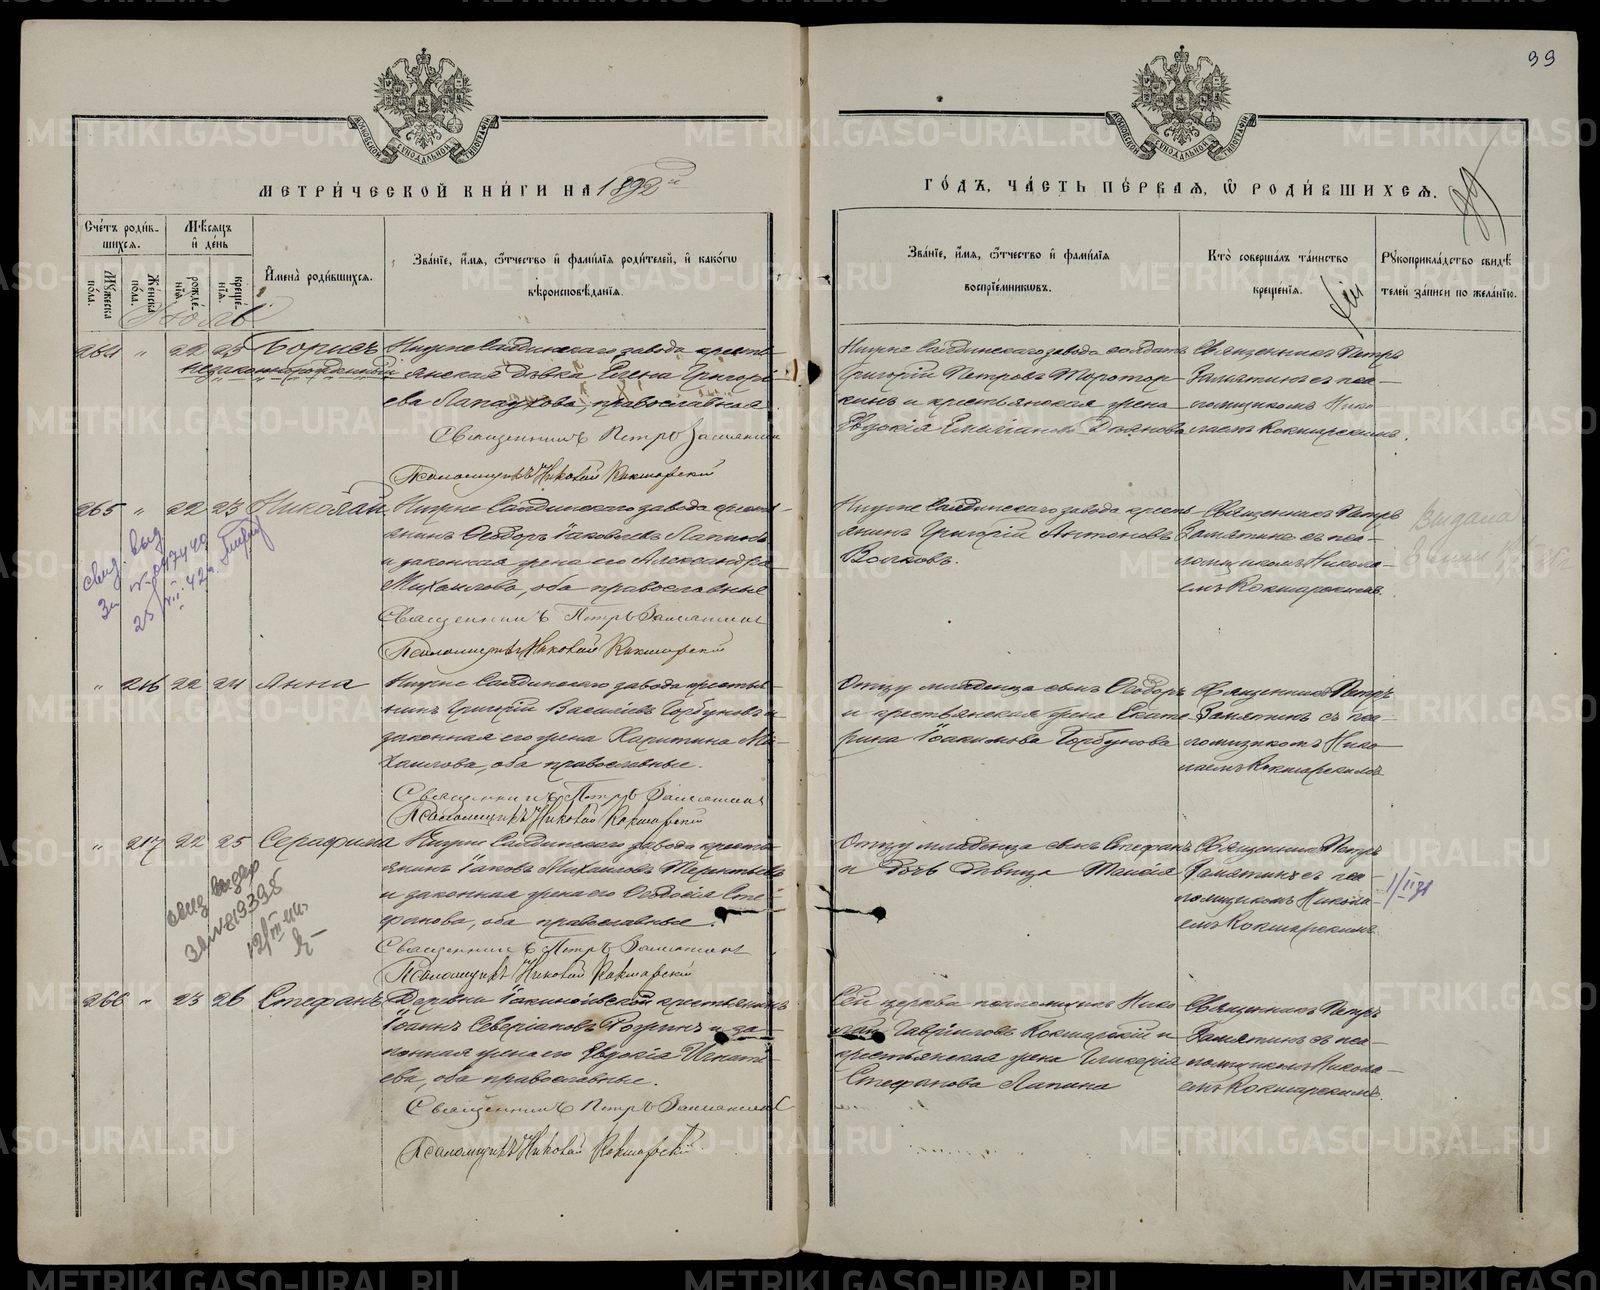 99
МЕТРИ́ЧЕСКОЙ КНИ́ГИ НА 1892й
ГО́ДЪ, ЧА́СТЬ ПЕ́РВАЯ, Ѡ РОДИ́ВШИХСЯ.
Сче́тъ роди́в-
шихся.
Мѣ́сяцъ
и҆ де́нь
Мꙋ́жеска по́ла.
Же́нска по́ла.
рожде́нїѧ.
креще́нїѧ.
И҆мена̀ роди́вшихся.
Зва́нїе, и҆́мя, ѻ҆́тчество и҆ фами́лїя роди́телей, и҆ како́гѡ
вѣроисповѣ́данїя.
Зва́нїе, и҆́мя, ѻ҆́тчество и҆ фами́лїя
воспрїе́мникѡвъ.
Кто̀ соверша́лъ та́инство
креще́нїя.
Рꙋкоприкла́дство свидѣ́-
телей за́писи по жела́нїю.
Июль
264 " 22 23 Борисъ
незаконнорожденный
Нижне Салдинскаго завода кресть-
янская дѣвка Елена Григорі-
ева Лапаухова, православная
Священникъ Петръ Замятинъ
Псаломщикъ Николай Кокшарскій
Нижне Салдинскаго завода солдатъ
Григорій Петровъ
и крестьянская жена
Евдокія
Священникъ Петръ
Замятинъ съ пса-
ломщикомъ Нико-
лаемъ Кокшарскимъ.
265 " 22 23 Николай
Нижне Салдинскаго завода кресть-
янинъ Ѳеодоръ Іаковлевъ Лапинъ
и законная жена его Александра
Михаилова, оба православные
Священникъ Петръ Замятинъ
Псаломщикъ Николай Кокшарскій
Нижне Салдинскаго завода кресть-
янинъ Григорій Антоновъ
Волковъ.
Священникъ Петръ
Замятинъ съ пса-
ломщикомъ Никола-
емъ Кокшарскимъ.
Выдана
свид. выд
" 216 22 24 Анна
Нижне Салдинскаго завода крестья-
нинъ Григорій Василіевъ Горбуновъ и
законная его жена Капитина Ми-
хаилова, оба православные.
Священникъ Петръ Замятинъ
Псаломщикъ Николай Кокшарскій
Отцу младенца сынъ Ѳеодоръ
и крестьянская жена Екате-
рина Іоакимова Горбунова
Священникъ Петръ
Замятинъ съ пса-
ломщикомъ Нико-
лаемъ Кокшарскимъ
" 217 22 25 Серафима
Нижне Салдинскаго завода кресть-
янинъ Іаковъ Михаиловъ Терентьевъ
и законная жена его Ѳеодосія Сте-
фанова, оба православные.
Священникъ Петръ Замятинъ
Псаломщикъ Николай Кокшарскій
Отцу младенца сынъ Стефанъ
и дочь дѣвица Таисія
Священникъ Петръ
Замятинъ съ пса-
ломщикомъ Никола-
емъ Кокшарскимъ.
266 " 23 26 Стефанъ
Деревни крестьянинъ
Іоаннъ Северіановъ и за-
конная жена его Евдокія Игнаті-
ева, оба православные.
Священникъ Петръ Замятинъ
Псаломщикъ Николай Кокшарскій
Сей церкви псаломщикъ Нико-
лай Гавріиловъ Кокшарскій и
крестьянская жена Гликерія
Стефанова Лапина
Священникъ Петръ
Замятинъ съ пса-
ломщикомъ Никола-
емъ Кокшарскимъ.
METRIKI.GASO-URAL.RU